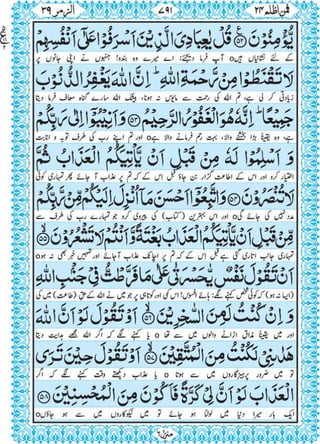 فمن اظلم ۲۴ ۷۹۱ الزمر ۳۹
يُّؤْمِنُوْنَ ﴿۵۲﴾ قُلْ يٰعِبَادِيَ الَّذِيْنَ اَسْرَفُوْا عَلٰٓى اَنْفُسِهِمْ
کے لئے نشانیاں ہیں o آپ فرما دیجئے: اے میرے وہ بندو! جنہوں نے اپنی جانوں پر
لَا تَقْنَطُوْا مِنْ رَّحْمَةِ اللّٰهِ ؕ اِنَّ اللّٰهَ يَغْفِرُ الذُّنُوْبَ
زیادتی کر لی ہے، تم اللہ کی رحمت سے مایوس نہ ہونا، بیشک اللہ سارے گناہ معاف فرما دیتا
جَمِيْعًا ؕ اِنَّهٗ هُوَ الْغَفُوْرُ الرَّحِيْمُ ﴿۵۳﴾ وَ اَنِيْبُوْۤا اِلٰى رَبِّكُمْ
ہے، وہ یقینا بڑا بخشنے والا، بہت رحم فرمانے والا ہے o اور تم اپنے رب کی طرف توبہ و انابت
وَ اَسْلِمُوْا لَهٗ مِنْ قَبْلِ اَنْ يَّاْتِيَكُمُ الْعَذَابُ ثُمَّ
اختیار کرو اور اس کے اطاعت گزار بن جاؤ قبل اس کے کہ تم پر عذاب آ جائے پھر تمہاری کوئی
لَا تُنْصَرُوْنَ ﴿۵۴﴾ وَ اتَّبِعُوْۤا اَحْسَنَ مَاۤ اُنْزِلَ اِلَيْكُمْ مِّنْ رَّبِّكُمْ
مدد نہیں کی جائے گی o اور اس بہترین (کتاب) کی پیروی کرو جو تمہارے رب کی طرف سے
مِّنْ قَبْلِ اَنْ يَّاْتِيَكُمُ الْعَذَابُ بَغْتَةً وَّ اَنْتُمْ لَا تَشْعُرُوْنَ ﴿۵۵﴾
تمہاری جانب اتاری گئی ہے قبل اس کے کہ تم پر اچانک عذاب آ جائے اور تمہیں خبر بھی نہ ہو o
اَنْ تَقُوْلَ نَفْسٌ يّٰحَسْرَتٰى عَلٰى مَا فَرَّطْتُّ فِيْ جَنْۢبِ اللّٰهِ
(ایسا نہ ہو) کہ کوئی شخص کہنے لگے: ہائے افسوس! اس کمی اور کوتاہی پر جو میں نے اللہ کے حقِ (طاعت) میں کی
وَ اِنْ كُنْتُ لَمِنَ السّٰخِرِيْنَ ﴿۵۶﴾ اَوْ تَقُوْلَ لَوْ اَنَّ اللّٰهَ
اور میں یقینا مذاق اڑانے والوں میں سے تھا o یا کہنے لگے کہ اگر اللہ مجھے ہدایت دیتا
هَدٰىنِيْ لَكُنْتُ مِنَ الْمُتَّقِيْنَ ﴿۵۷﴾ اَوْ تَقُوْلَ حِيْنَ تَرَى
تو میں ضرور پرہیزگاروں میں سے ہوتا o یا عذاب دیکھتے وقت کہنے لگے کہ اگر
الْعَذَابَ لَوْ اَنَّ لِيْ كَرَّةً فَاَكُوْنَ مِنَ الْمُحْسِنِيْنَ ﴿۵۸﴾
ایک بار میرا دنیا میں لوٹنا ہو جائے تو میں نیکوکاروں میں سے ہو جاؤں o
منزل ۶